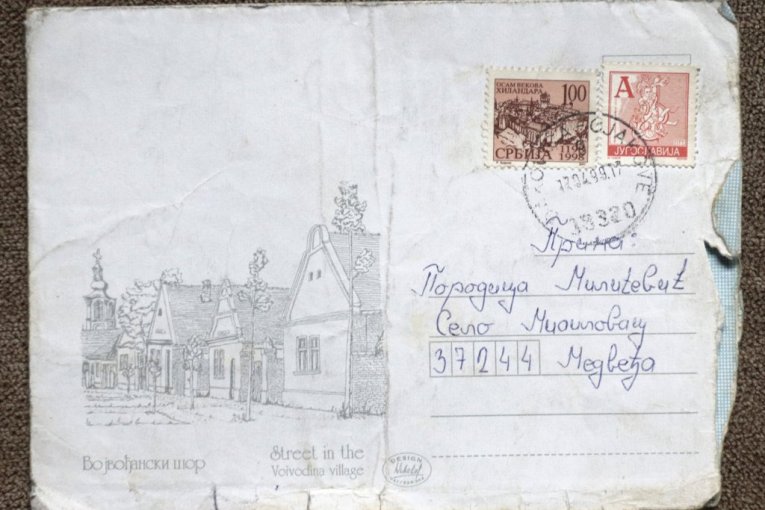 ОСАМ ВЕКОВА
ХИЛАНДАРА
100
СРБИЈА
1998
A
ЈУГОСЛАВИЈА
12.04.99.17
Прима:
Породица Милићевић
Село
37244 Медвеђа
Војвођански шор
Street in the
Voivodina village
DESIGN